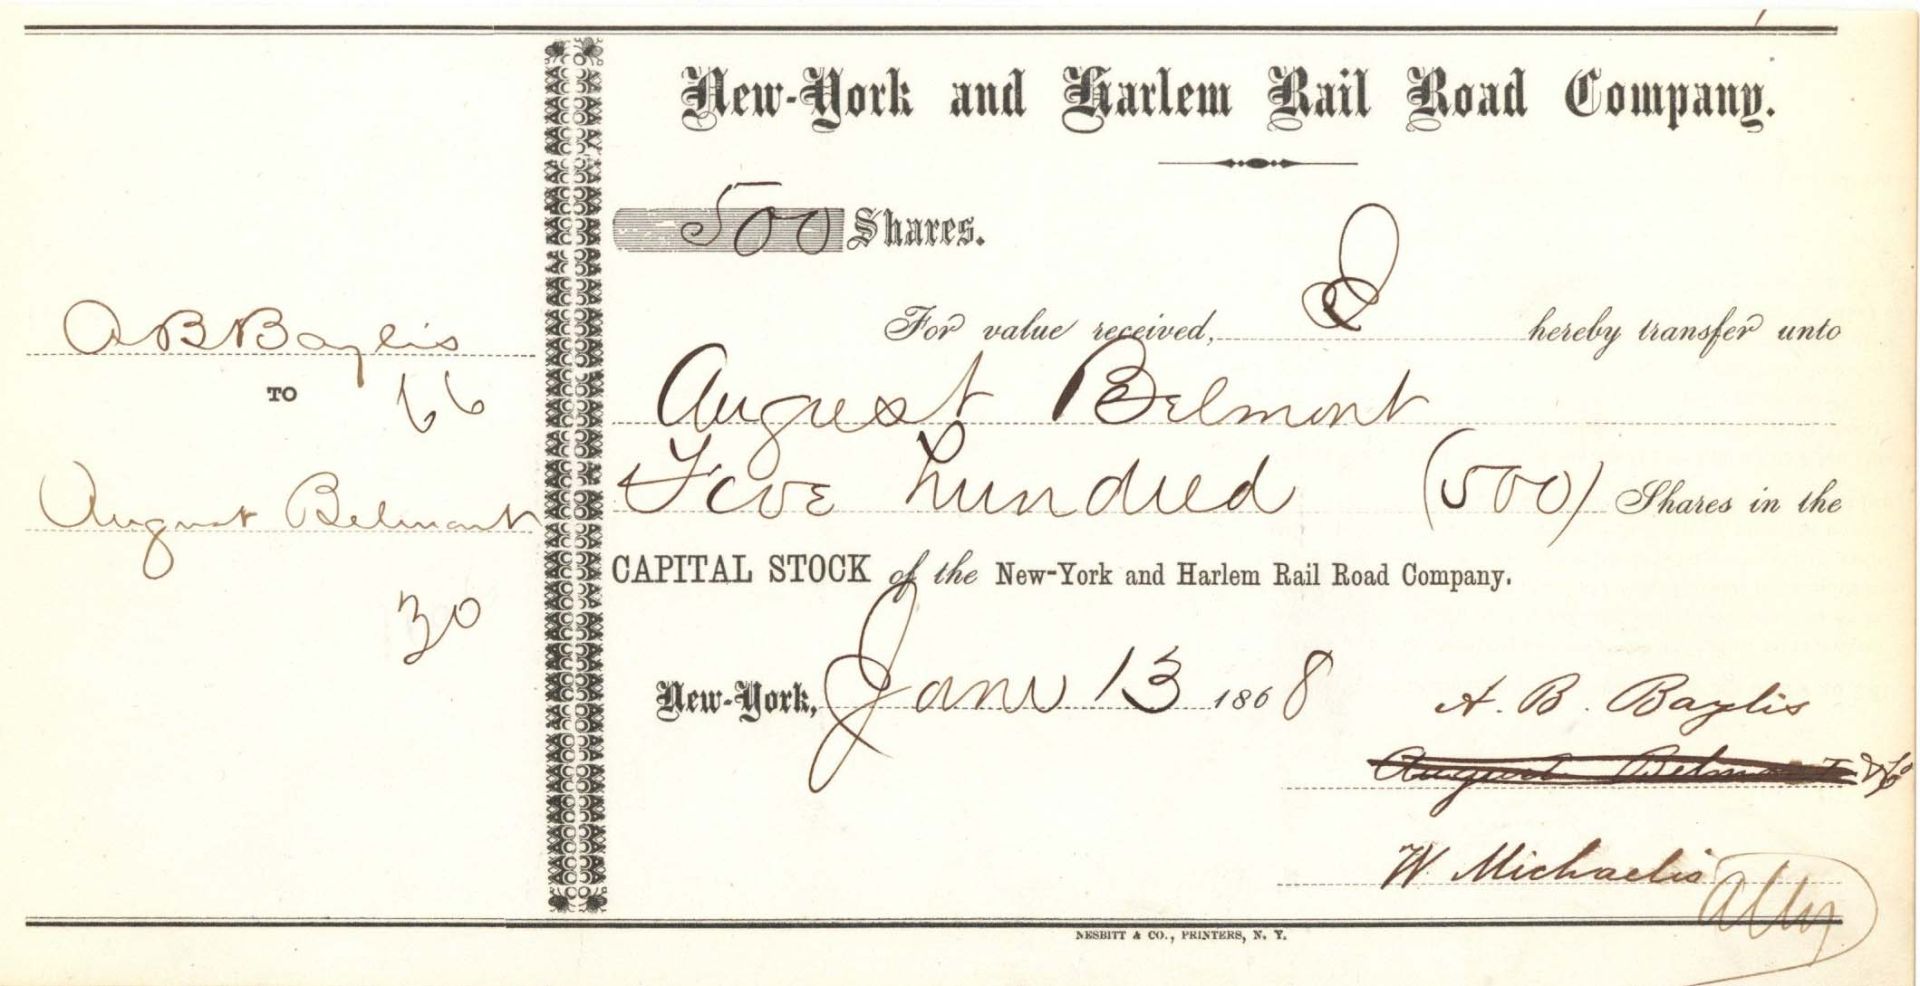 New-York and Harlem Rail Road Company.
500 Shares.
For value received, I hereby transfer unto
August Belmont
Five hundred (500) Shares in the
CAPITAL STOCK of the New-York and Harlem Rail Road Company.
New-York, Jany 13 1868
A. B. Baylis
August Belmont & Co
W. Michaelis Atty
NESBITT & CO., PRINTERS, N. Y.
A B Baylis
TO
66
August Belmont
30